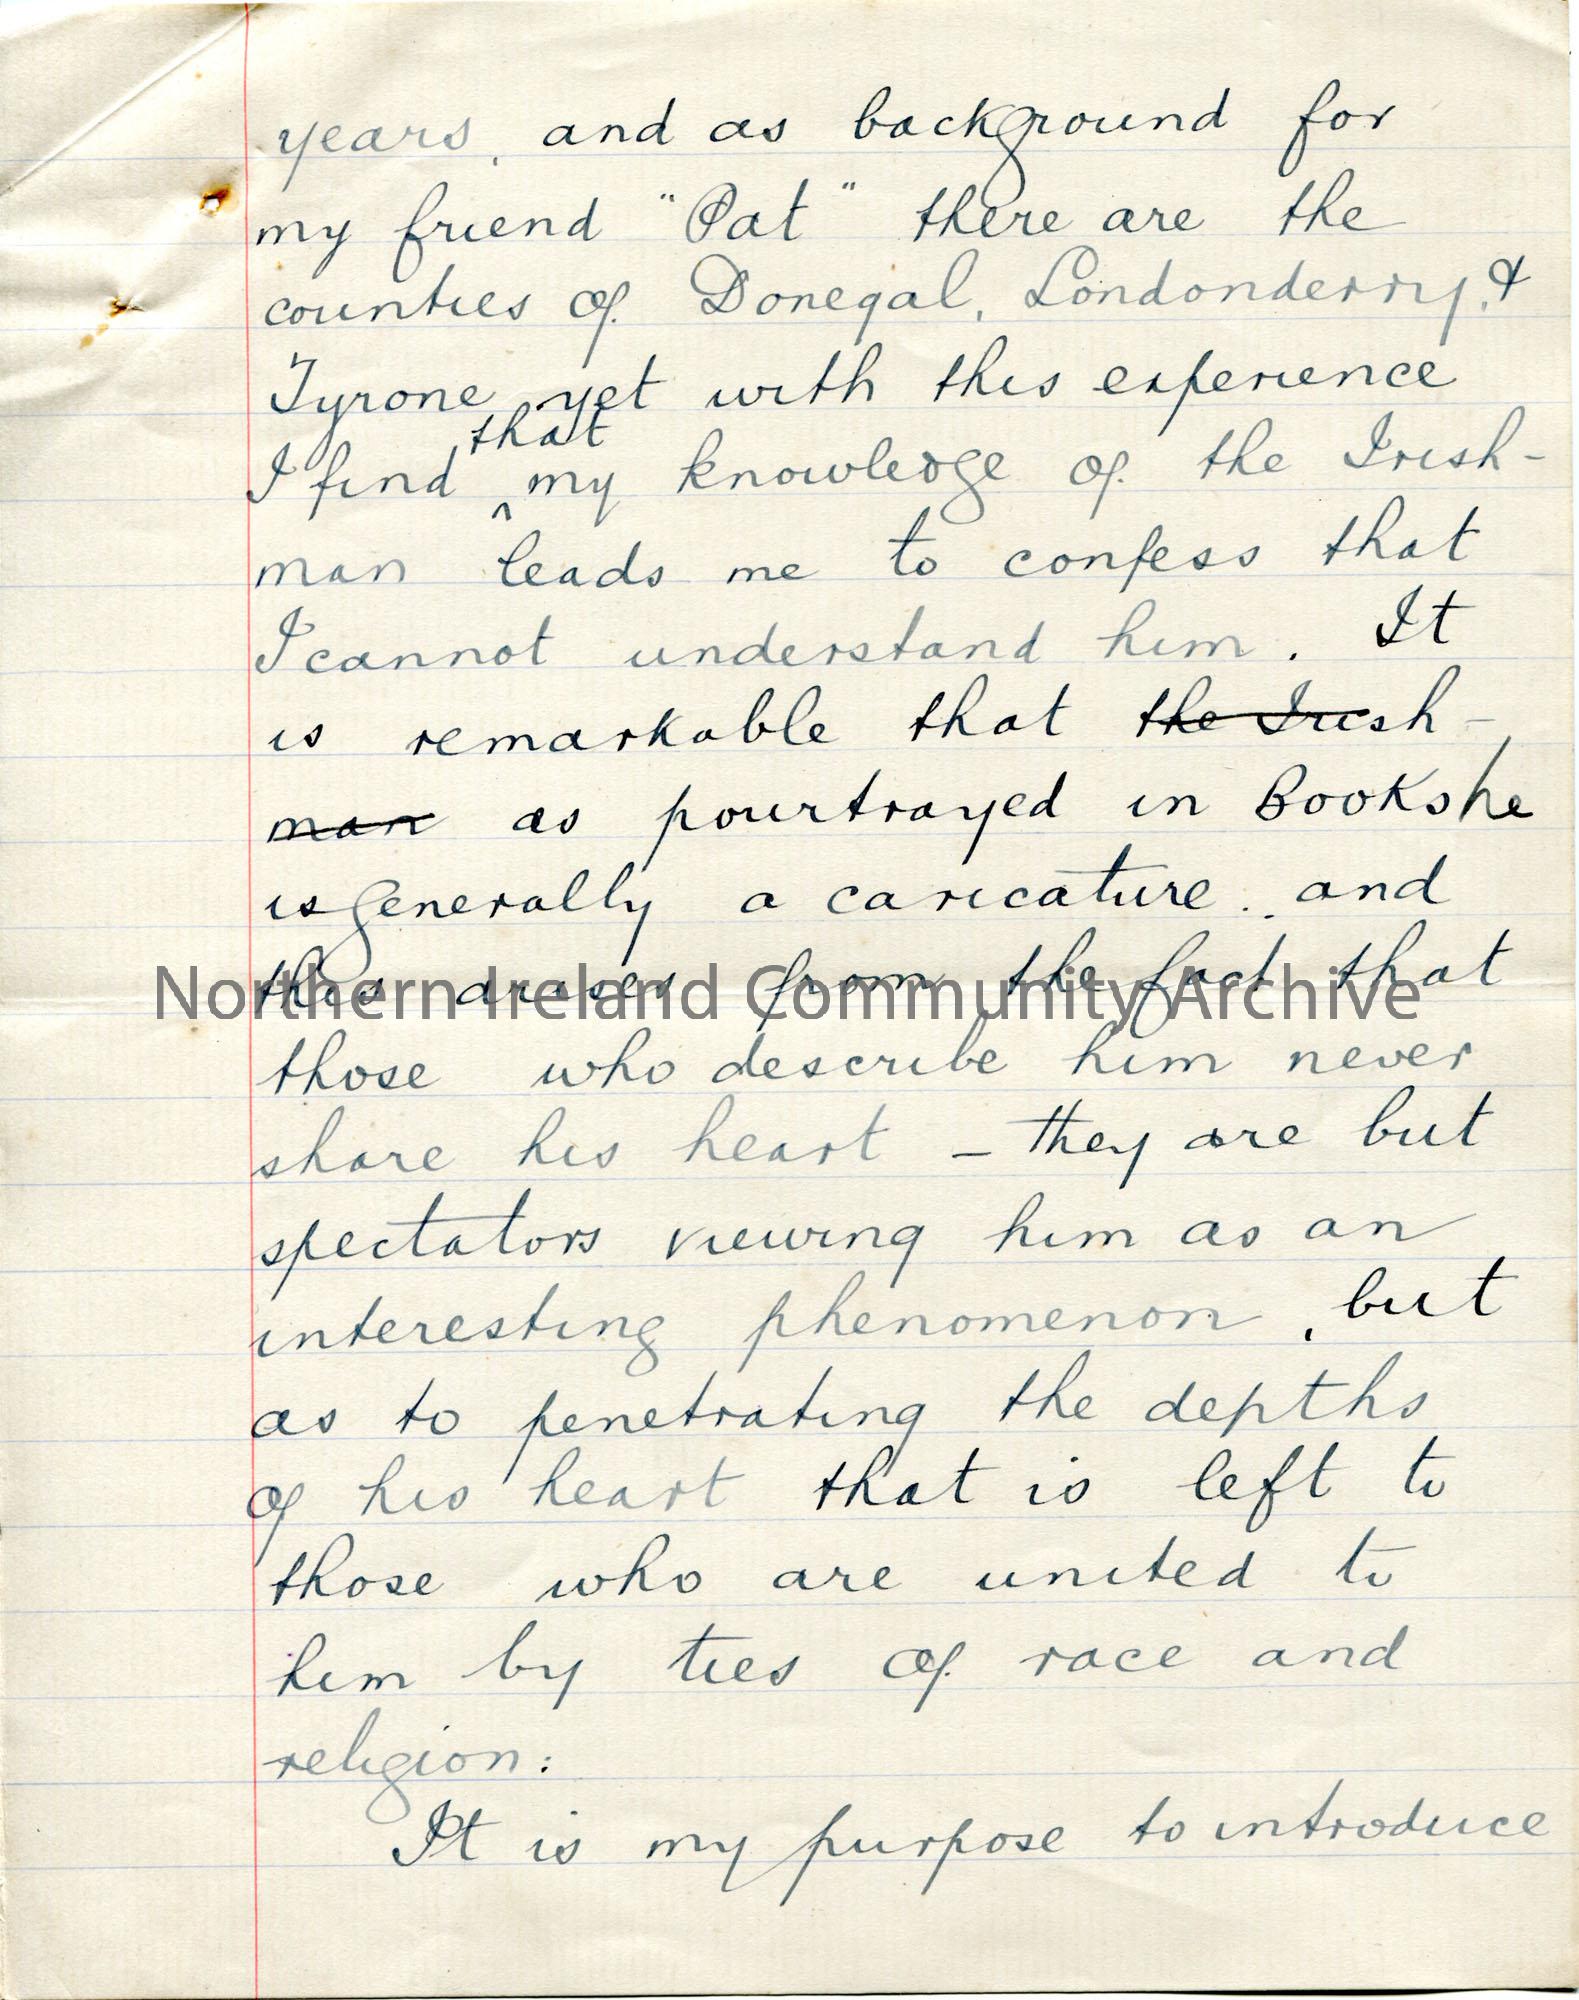 years, and as background for
my friend "Pat" there are the
counties of Donegal, Londonderry, &
Tyrone yet with this experience
that
I find ^ my knowledge of the Irish-
man leads me to confess that
I cannot understand him. It
is remarkable that the Irish-
man as pourtrayed in Books he
is generally a caricature . . and
this arises from the fact that
Northern Ireland Community Archive
those who describe him never
share his heart – they are but
spectators viewing him as an
interesting phenomenon, but
as to penetrating the depths
of his heart that is left to
those who are united to
him by ties of race and
religion:
It is my purpose to introduce